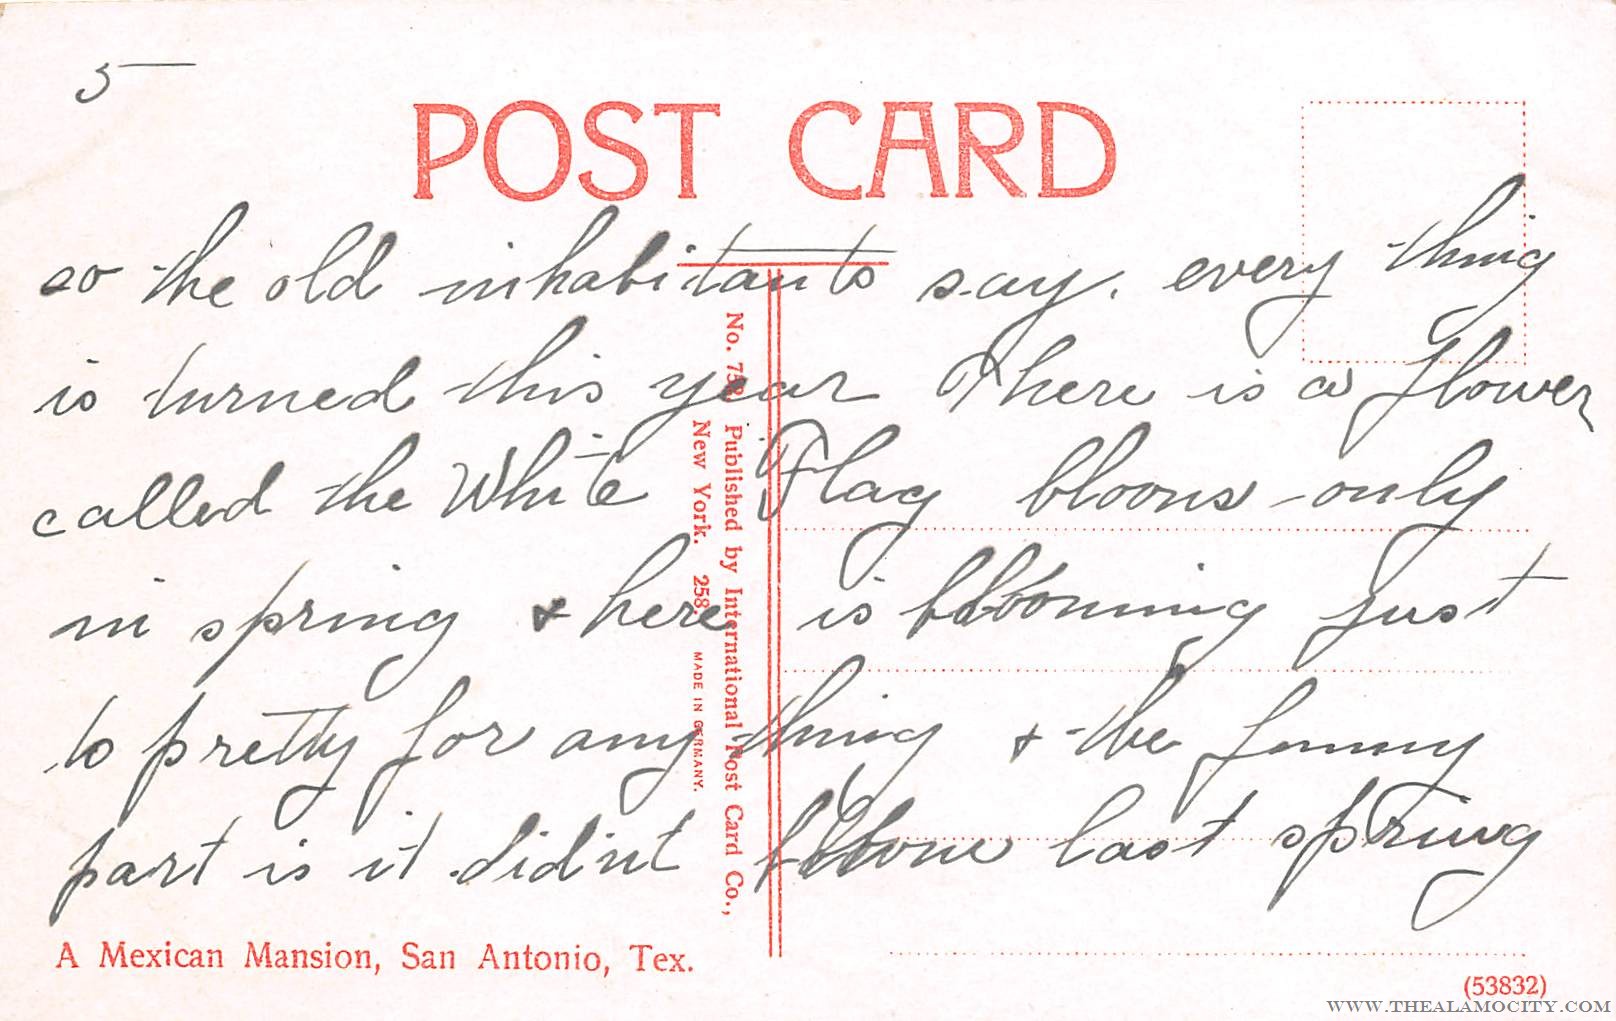 5
POST CARD
so the old inhabitants say. every thing
is turned this year There is a flower
called the White Flag blooms only
in spring & here is blooming just
to pretty for any thing & the funny
part is it didn't bloom last spring
No. 752 Published by International Post Card Co.,
New York. 258. MADE IN GERMANY.
A Mexican Mansion, San Antonio, Tex.
(53832)
WWW.THEALAMOCITY.COM